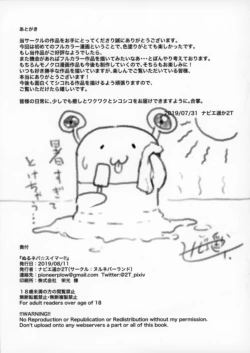 あとがき
当サークルの作品をお手にとってくださり誠にありがとうございます。
今回は初めてのフルカラー漫画ということで、色塗りがとても楽しかったです。
もし当作品がご好評なようでしたら、
また機会があればフルカラー作品を描いてみたいなあ…とぼんやり考えております。
もちろんモノクロ漫画作品も今後も制作していくので、そちらもお楽しみに!
いつも好き勝手な作品を描いていますが、楽しんでご覧いただいている皆様、
本当にありがとうございます。
今後も面白くてシコれる作品が描けるよう頑張りますので、
ご覧いただけたら嬉しいです。
皆様の日常に、少しでも癒しとワクワクとシコシコをお届けできますように。合掌。
2019/07/31 ナビエ遥か2T
暑すぎて
とけちゃう…
奥付
『ぬるネバ☆スイマー!!』
発行日:2019/08/11
発行者:ナビエ遥か2T(サークル:ヌルネバーランド)
連絡先:pioneerplow@gmail.com Twitter:@2T_pixiv
印刷:株式会社 栄光 様
18歳未満の方の閲覧禁止
無断転載禁止・無断複製禁止
For adult readers over age of 18
WARNING!!
No Reproduction or Republication or Redistribution without my permission.
Don't upload onto any webservers a part or all of this book.